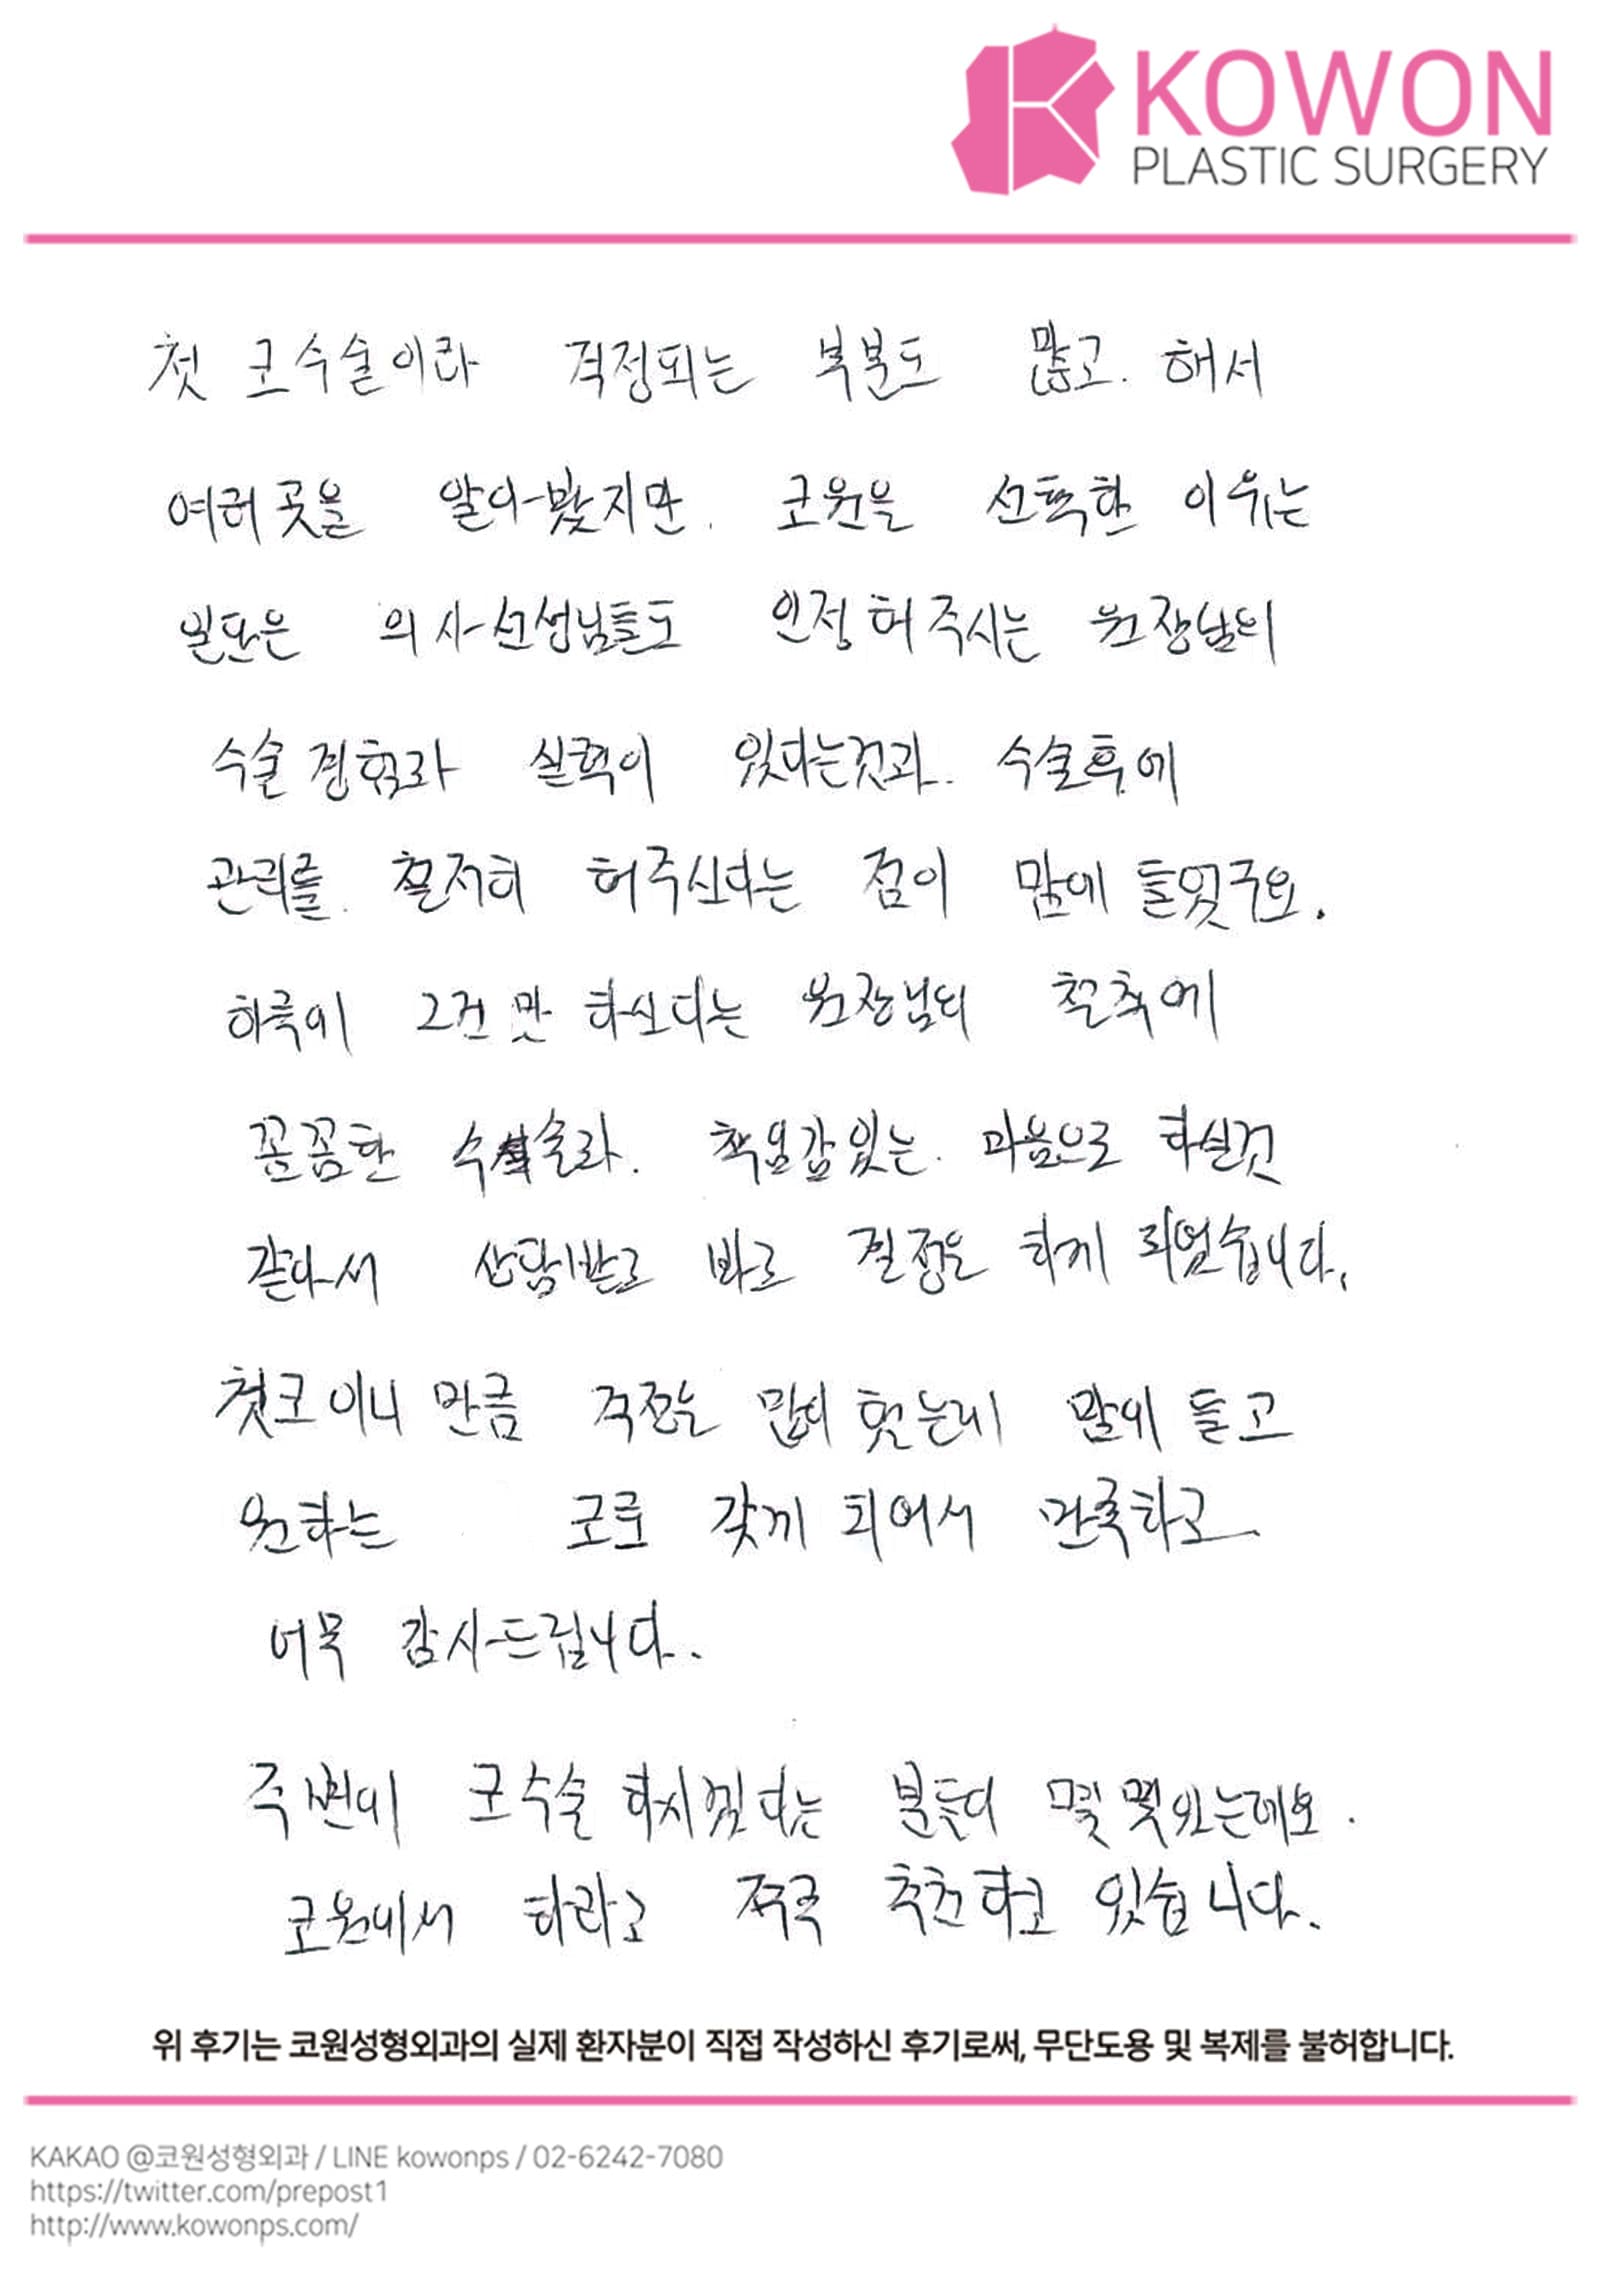 KOWON
PLASTIC SURGERY
첫 코수술이라 걱정되는 부분도 많고. 해서
여러곳을 알아봤지만. 코원을 선택한 이유는
일단은 의사선생님들도 인정해주시는 원장님의
수술경험과 실력이 있다는것과. 수술후에
관리를. 철저히 해주신다는 점이 맘에 들었구요.
하루에 2건만 하신다는 원장님의 철칙에
꼼꼼한 수술과. 책임감있는. 마음으로 하실것
같아서 상담받고 바로 결정을 하게 되었습니다.
첫코이니 만큼 걱정은 많이 했는데 맘에 들고
원하는 코를 갖게 되어서 만족하고
너무 감사드립니다..
주변에 코수술 하시겠다는 분들이 몇몇있는데요.
코원에서 하라고 쭈욱 추천하고 있습니다.
위 후기는 코원성형외과의 실제 환자분이 직접 작성하신 후기로써, 무단도용 및 복제를 불허합니다.
KAKAO @코원성형외과 / LINE kowonps / 02-6242-7080
https://twitter.com/prepost1
http://www.kowonps.com/